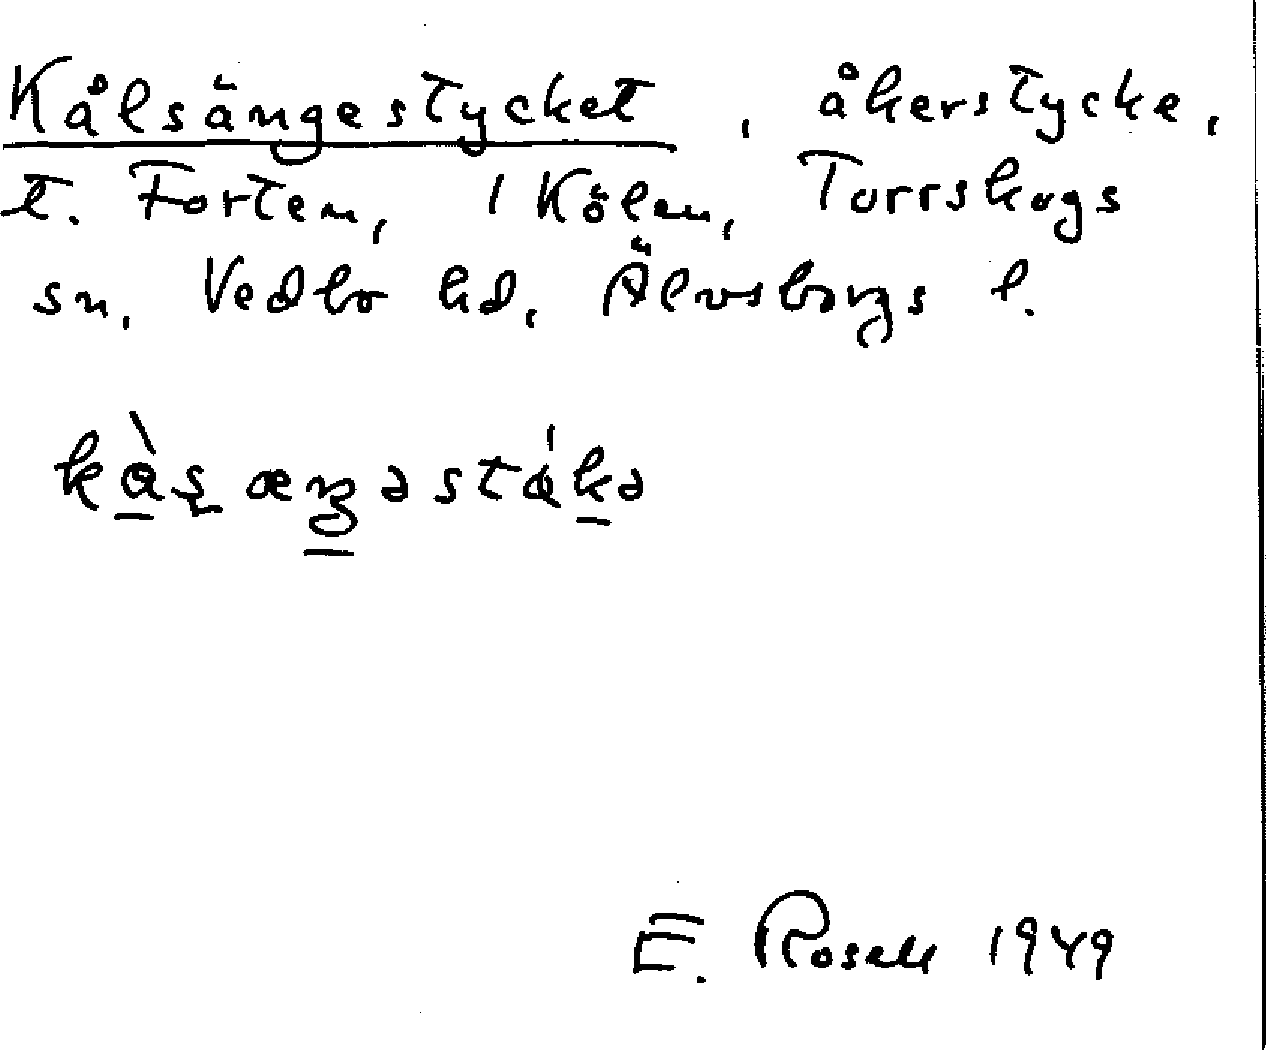 Kålsängestycket, åkerstycke,
t. Forten, 1 Kölen, Torrskogs
sn, Vedbo hd, Älvsborgs l.
E. Rosell 1949